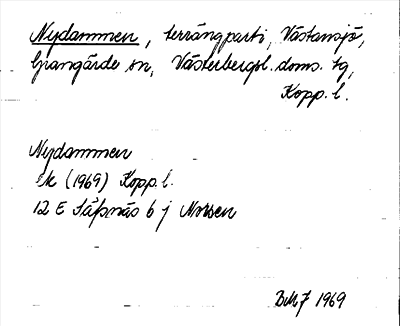 Nydammen, terrängparti, Västansjö,
Grangärde sn, Västerbergsl. doms. tg,
Kopp. l.
Nydammen
Ek (1969) Kopp. l.
12 E Säfsnäs 6 j Norsen
BMF 1969